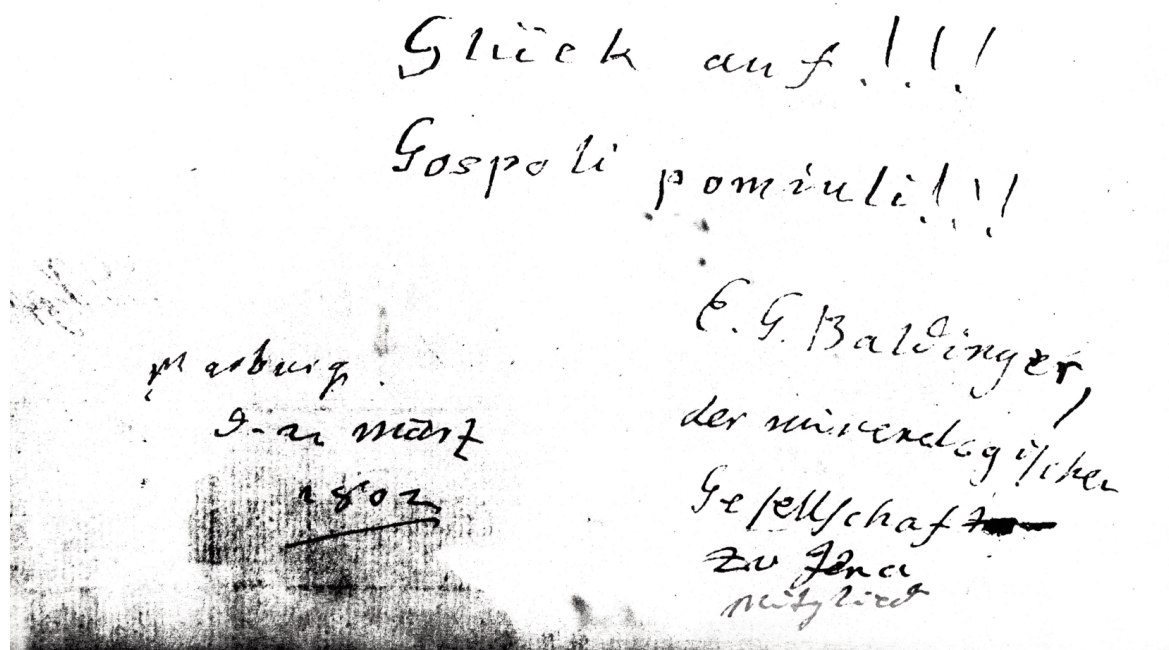 Glück auf!!!
Gospoli pomiuli!!!
E. G. Baldinger,
der mineralogischen
Gesellschaft
zu Jena
Mitglied
Marburg.
März
1802